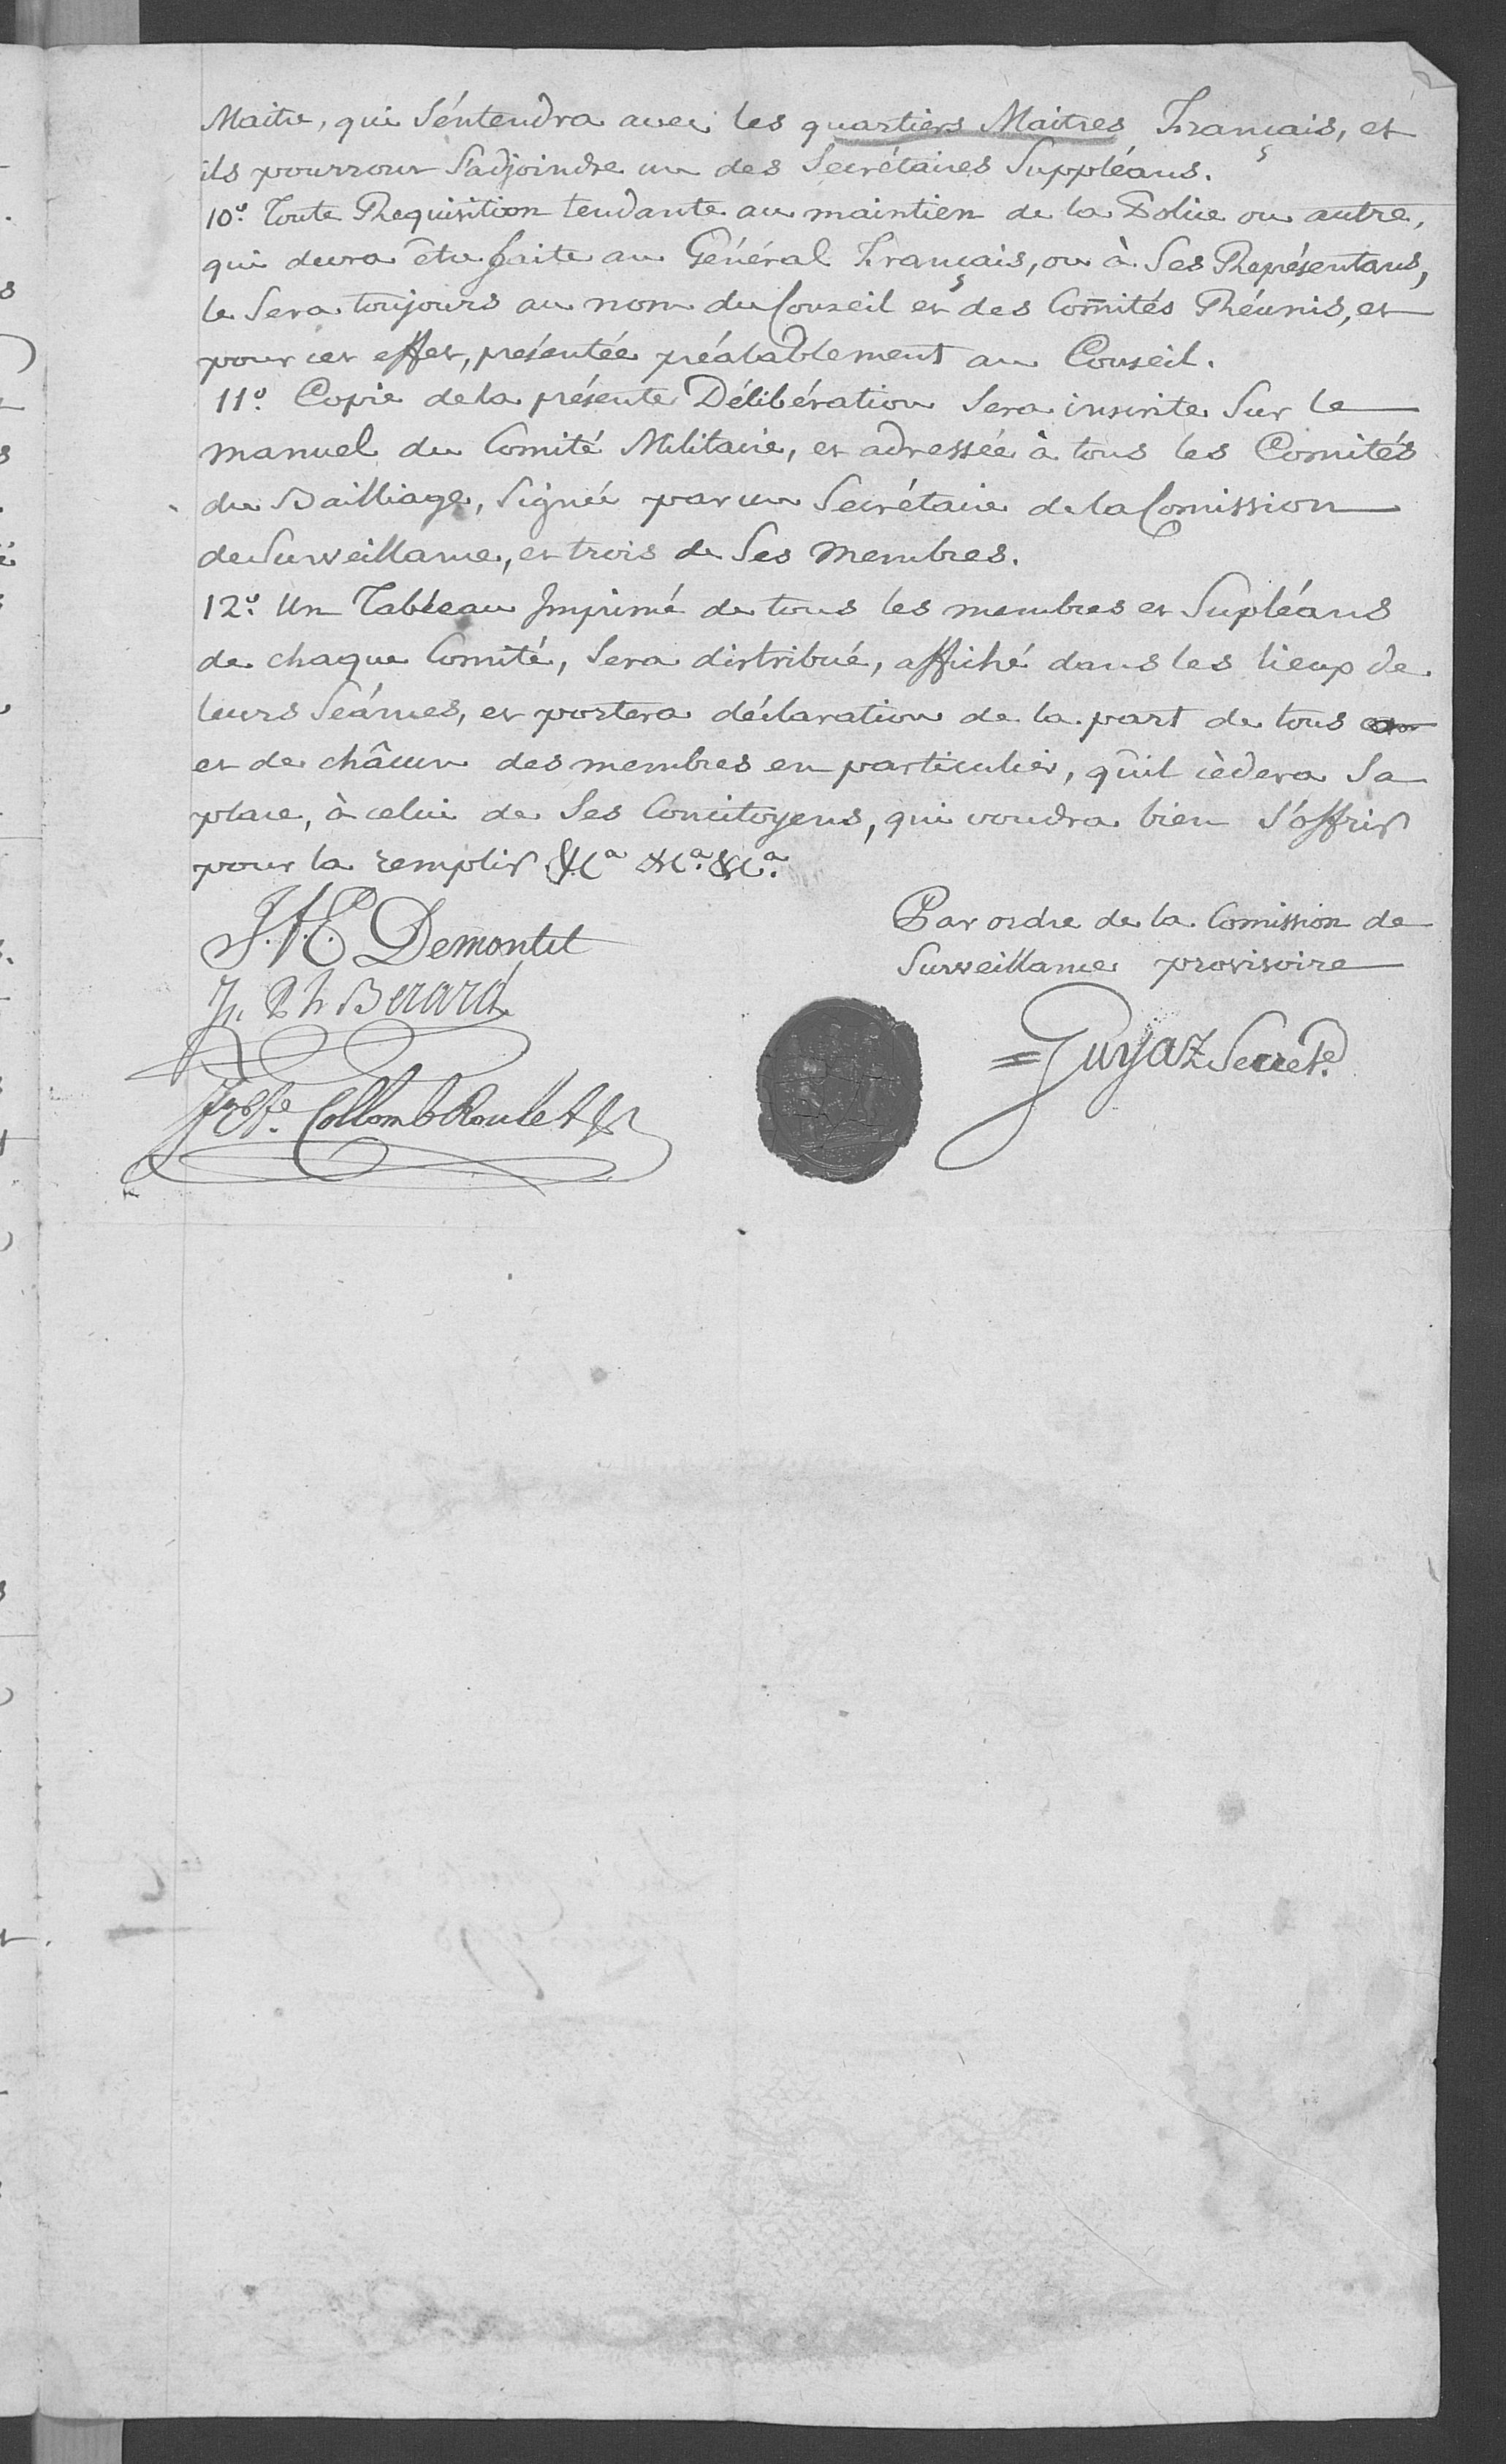 Maitre, qui s'éntendra avec les quartiers Maitres Français, et
ils pourront s'adjoindre un des Secrétaires Suppléans.
10º. Toute Requisition tendante au maintien de la Police ou autre,
qui devra être faite au Général Français, ou à Ses Représentans,
le Sera toujours au nom du Conseil et des Com̄ités Réunis, et
pour cet effet, présentée préalablement au Conseil.
11º. Copie de la présente Délibération Sera inscrite Sur le
manuel du Comité Militaire, et adressée à tous les Comités
du Bailliage, Signée par un Secrétaire de la Comission
de Surveillance, et trois de Ses Membres.
12º. Un Tableau Imprimé de tous les membres et Supléans
de chaque Comité, Sera distribué, affiché dans les lieux de
leurs Séances, et portera déclaration de la part de tous
et de châcun des membres en particulier, qu'il cèdera Sa
place, à celui de Ses Concitoyens, qui voudra bien s'offrir
pour la remplir &Cª &Cª. &Cª.
Par ordre de la Comission de
Surveillance provisoire
Demontet
Berard
Guyaz Secret.
Collomb Roulet